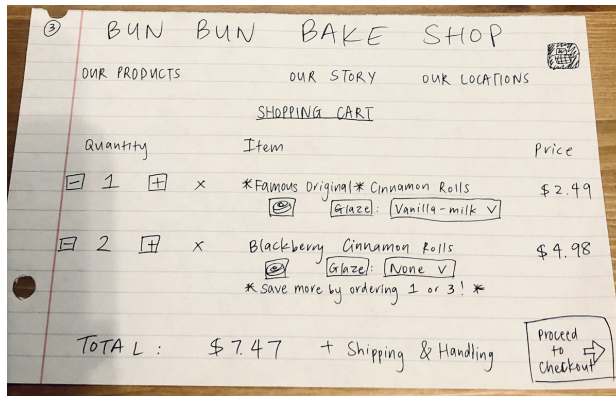 ③
BUN BUN BAKE SHOP
OUR PRODUCTS OUR STORY OUR LOCATIONS
SHOPPING CART
Quantity Item Price
- 1 + x *Famous Original* Cinnamon Rolls $2.49
Glaze: Vanilla-milk V
- 2 + x Blackberry Cinnamon Rolls $4.98
Glaze: None V
*Save more by ordering 1 or 3! *
TOTAL: $7.47 + Shipping & Handling
Proceed
to
Checkout